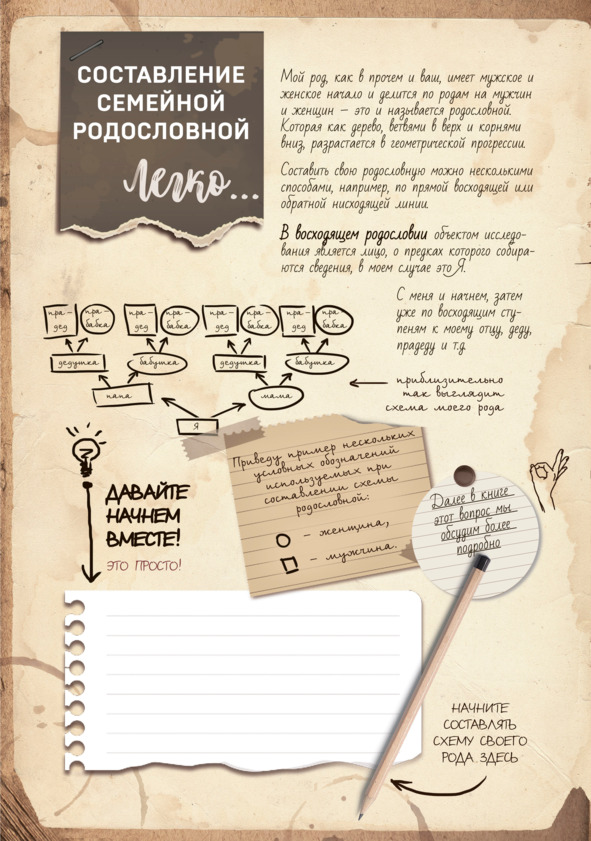 СОСТАВЛЕНИЕ
СЕМЕЙНОЙ
РОДОСЛОВНОЙ
Легко...
Мой род, как в прочем и ваш, имеет мужское и
женское начало и делится по родам на мужчин
и женщин – это и называется родословной.
Которая как дерево, ветвями в верх и корнями
вниз, разрастается в геометрической прогрессии.
Составить свою родословную можно несколькими
способами, например, по прямой восходящей или
обратной нисходящей линии.
В восходящем родословии объектом исследо-
вания является лицо, о предках которого собира-
ются сведения, в моем случае это Я.
С меня и начнем, затем
уже по восходящим сту-
пеням к моему отцу, деду,
прадеду и т.д.
пра-дед пра-бабка пра-дед пра-бабка пра-дед пра-бабка пра-дед пра-бабка
дедушка бабушка дедушка бабушка
папа мама
Я
приблизительно
так выглядит
схема моего рода
Приведу пример нескольких
условных обозначений
используемых при
составлении схемы
родословной:
– женщина,
– мужчина.
Далее в книге
этот вопрос мы
обсудим более
подробно
ДАВАЙТЕ
НАЧНЕМ
ВМЕСТЕ!
ЭТО ПРОСТО!
НАЧНИТЕ
СОСТАВЛЯТЬ
СХЕМУ СВОЕГО
РОДА ЗДЕСЬ